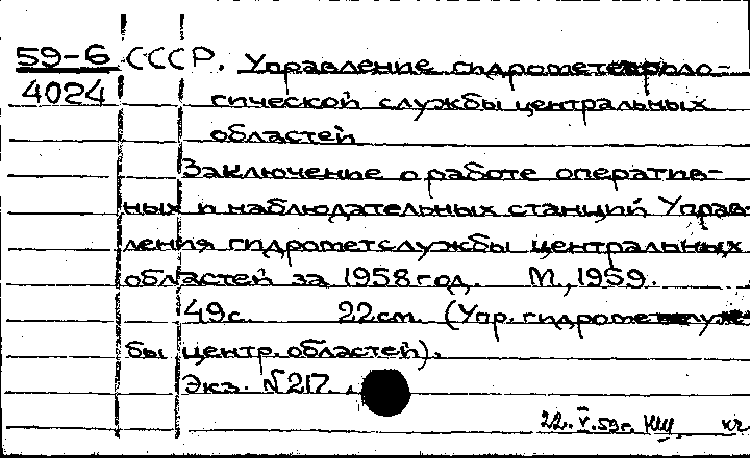 59-6 СССР. Управление гидрометеороло-
4024 гической службы центральных
областей
Заключение о работе оператив-
ных и наблюдательных станций Управ-
ления гидрометслужбы центральных
областей за 1958 год. М., 1959.
49с. 22см. (Упр. гидрометслуж-
бы центр. областей).
Экз. №217.
22.V.59г.